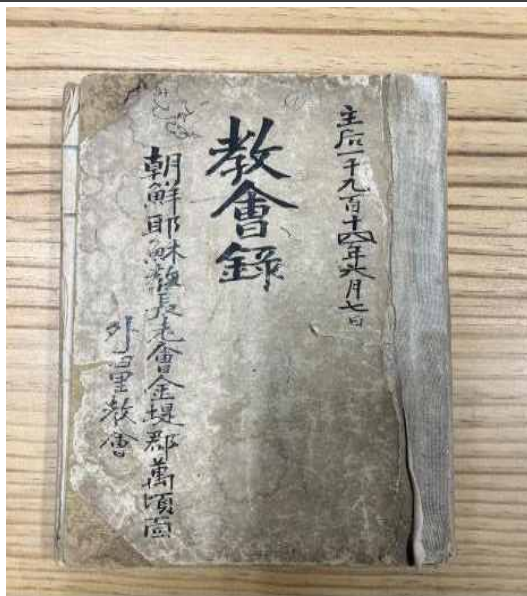 主后一千九百十四年六月七日
教會錄
朝鮮耶穌敎長老會金堤郡萬頃面
外里教會